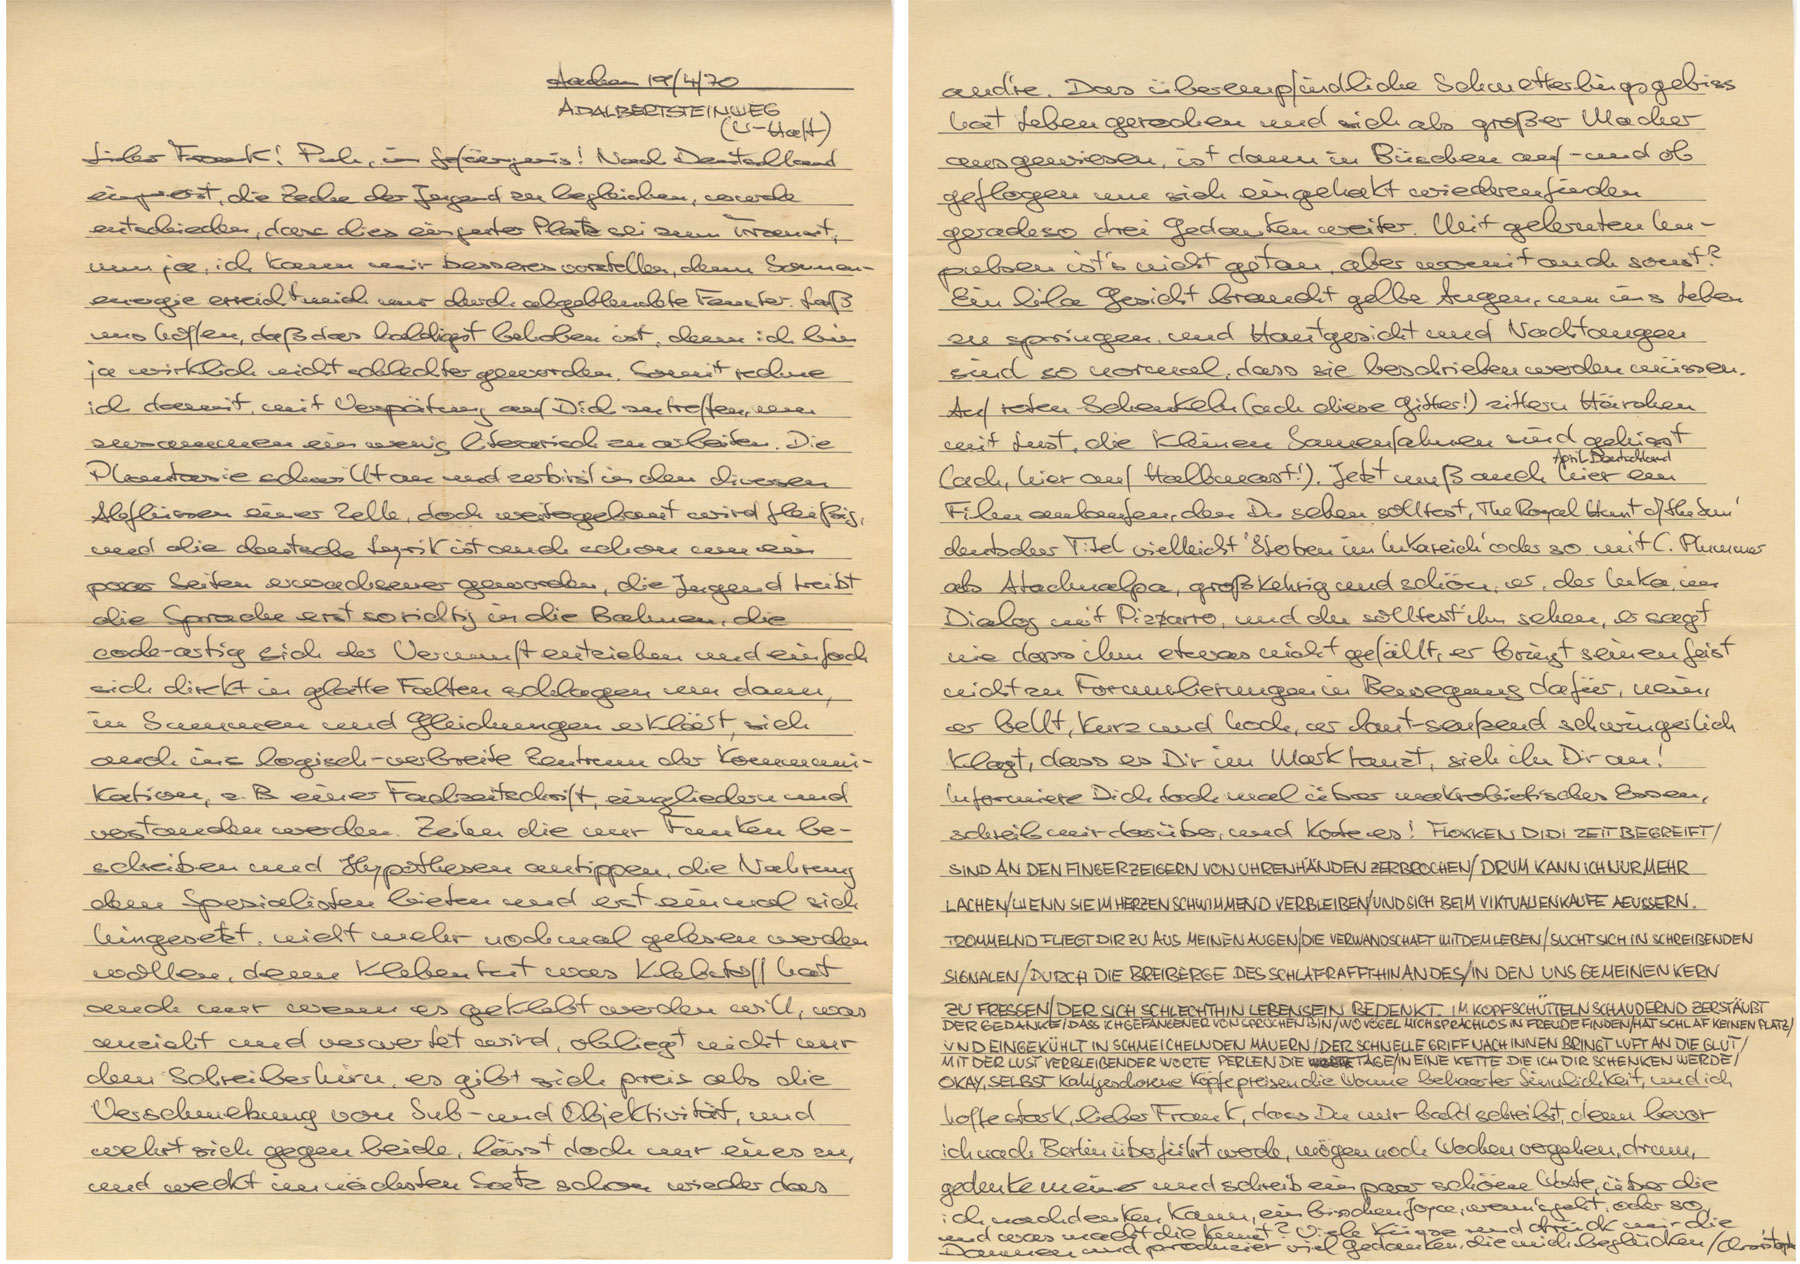 Aachen 19/4/70
ADALBERTSTEINWEG
(U-Haft)
Lieber Frank! Puh, im Gefängnis! Nach Deutschland
eingereist, die Zeche der Jugend zu begleichen, wurde
entschieden, dass dies ein guter Platz sei zum
nun ja, ich kann mir besseres vorstellen, denn Sonnen-
energie erreicht mich nur durch abgeblendete Fenster. Laß
uns hoffen, daß das baldigst behoben ist, denn ich bin
ja wirklich nicht schlechter geworden. Somit rechne
ich damit, mit Verspätung auf Dich zu treffen, um
zusammen ein wenig literarisch zu arbeiten. Die
Phantasie schwillt an und zerbirst in den diversen
Abflüssen einer Zelle, doch weitergebaut wird fleißig,
und die deutsche Lyrik ist auch schon um ein
paar Seiten erwachsener geworden, die Jugend treibt
die Sprache erst so richtig in die Bahnen, die
code-artig sich der Vernunft entziehen und einfach
sich direkt in glatte Falten schlagen um dann,
in Summen und Gleichungen erklärt, sich
auch ins logisch-verbreite Zentrum der Kommuni-
kation, z.B. einer Fachzeitschrift, eingliedern und
verstanden werden. Zeilen die nur Funken be-
schreiben und Hypothesen antippen, die Nahrung
dem Spezialisten bieten und erst einmal sich
hingesetzt, nicht mehr nochmal gelesen werden
wollen, denn Kleben tut was Klebstoff hat
auch nur wenn es geklebt werden will, was
anzieht und verwertet wird, obliegt nicht nur
dem Schreiberhirn, es gibt sich preis als die
Verschmelzung von Sub- und Objektivität, und
wehrt sich gegen beide, lässt doch nur eines zu,
und weckt im nächsten Satz schon wieder das
andre. Das überempfindliche Schmetterlingsgebiss
hat Leben gerochen und sich als großer Macher
ausgewiesen, ist dann in Büschen auf- und ob
geflogen um sich eingehakt wiederzufinden
geradeso drei Gedanken weiter. Mit gelernten Im-
pulsen ist's nicht getan, aber womit auch sonst?
Ein lila Gesicht braucht gelbe Augen, um ins Leben
zu springen, und Hautgesicht und Nachtaugen
sind so normal, dass sie beschrieben werden müssen.
Auf roten Schenkeln (ach diese Gitter!) zittern Härchen
mit Lust, die kleinen Samenfahnen sind gehisst
(ach, hier auf Halbmast!). Jetzt muß auch hier ein
April Deutschland
Film anlaufen, den Du sehen solltest, 'The Royal Hunt of the Sun'
deutscher Titel vielleicht 'Sterben im Inkareich' oder so mit C. Plummer
als Atachualpa, großkehrig und schön, er, der Inka, im
Dialog mit Pizzarro, und du solltest ihn sehen, er sagt
nie dass ihm etwas nicht gefällt, er bringt seinen Geist
nicht zu Formulierungen in Bewegung dafür, nein,
er bellt, kurz und hoch, er klagt,
Klagt, dass es Dir im Mark tanzt, sieh ihn Dir an!
Informiere Dich doch mal über makrobiotisches Essen,
schreib mir darüber, und Koste es! FLOKKEN DIDI ZEIT BEGREIFT/
SIND AN DEN FINGERZEIGERN VON UHRENHÄNDEN ZERBROCHEN/DRUM KANN ICH NUR MEHR
LACHEN/WENN SIE IM HERZEN SCHWIMMEND VERBLEIBEN/UND SICH BEIM VIKTUALIENKAUFE AEUSSERN.
TROMMELND FLIEGT DIR ZU AUS MEINEN AUGEN/DIE VERWANDSCHAFT MIT DEM LEBEN/SUCHT SICH IN SCHREIBENDEN
SIGNALEN/DURCH DIE BREIBERGE DES SCHLAFRAFFTHINANDES/IN DEN UNS GEMEINEN KERN
ZU FRESSEN/DER SICH SCHLECHTHIN LEBENSEIN BEDENKT. IM KOPFSCHÜTTELN SCHAUDERND ZERSTÄUBT
DER GEDANKE/DASS ICH GEFANGENER VON SPRÜCHEN BIN/WO VÖGEL MICH SPRACHLOS IN FREUDE FINDEN/HAT SCHLAF KEINEN PLATZ/
UND EINGEKÜHLT IN SCHMEICHELNDEN MAUERN/DER SCHNELLE GRIFF NACH INNEN BRINGT LUFT AN DIE GLUT/
MIT DER LUST VERBLEIBENDER WORTE PERLEN DIE TAGE/IN EINE KETTE DIE ICH DIR SCHENKEN WERDE/
OKAY, SELBST Kahlgeschorene Köpfe preisen die Wonne behaarter Sinnlichkeit, und ich
hoffe stark, lieber Frank, dass Du mir bald schreibst, denn bevor
ich nach Berlin überführt werde, mögen noch Wochen vergehen, drum,
gedenke meiner und schreib ein paar schöne Worte, über die
ich nachdenken kann, ein bisschen Joyce, wenn's geht, oder so,
und was macht die Kunst? Viele Küsse und drück mir die
Daumen und produzier viel Gedanken, die mich beglücken/Christoph